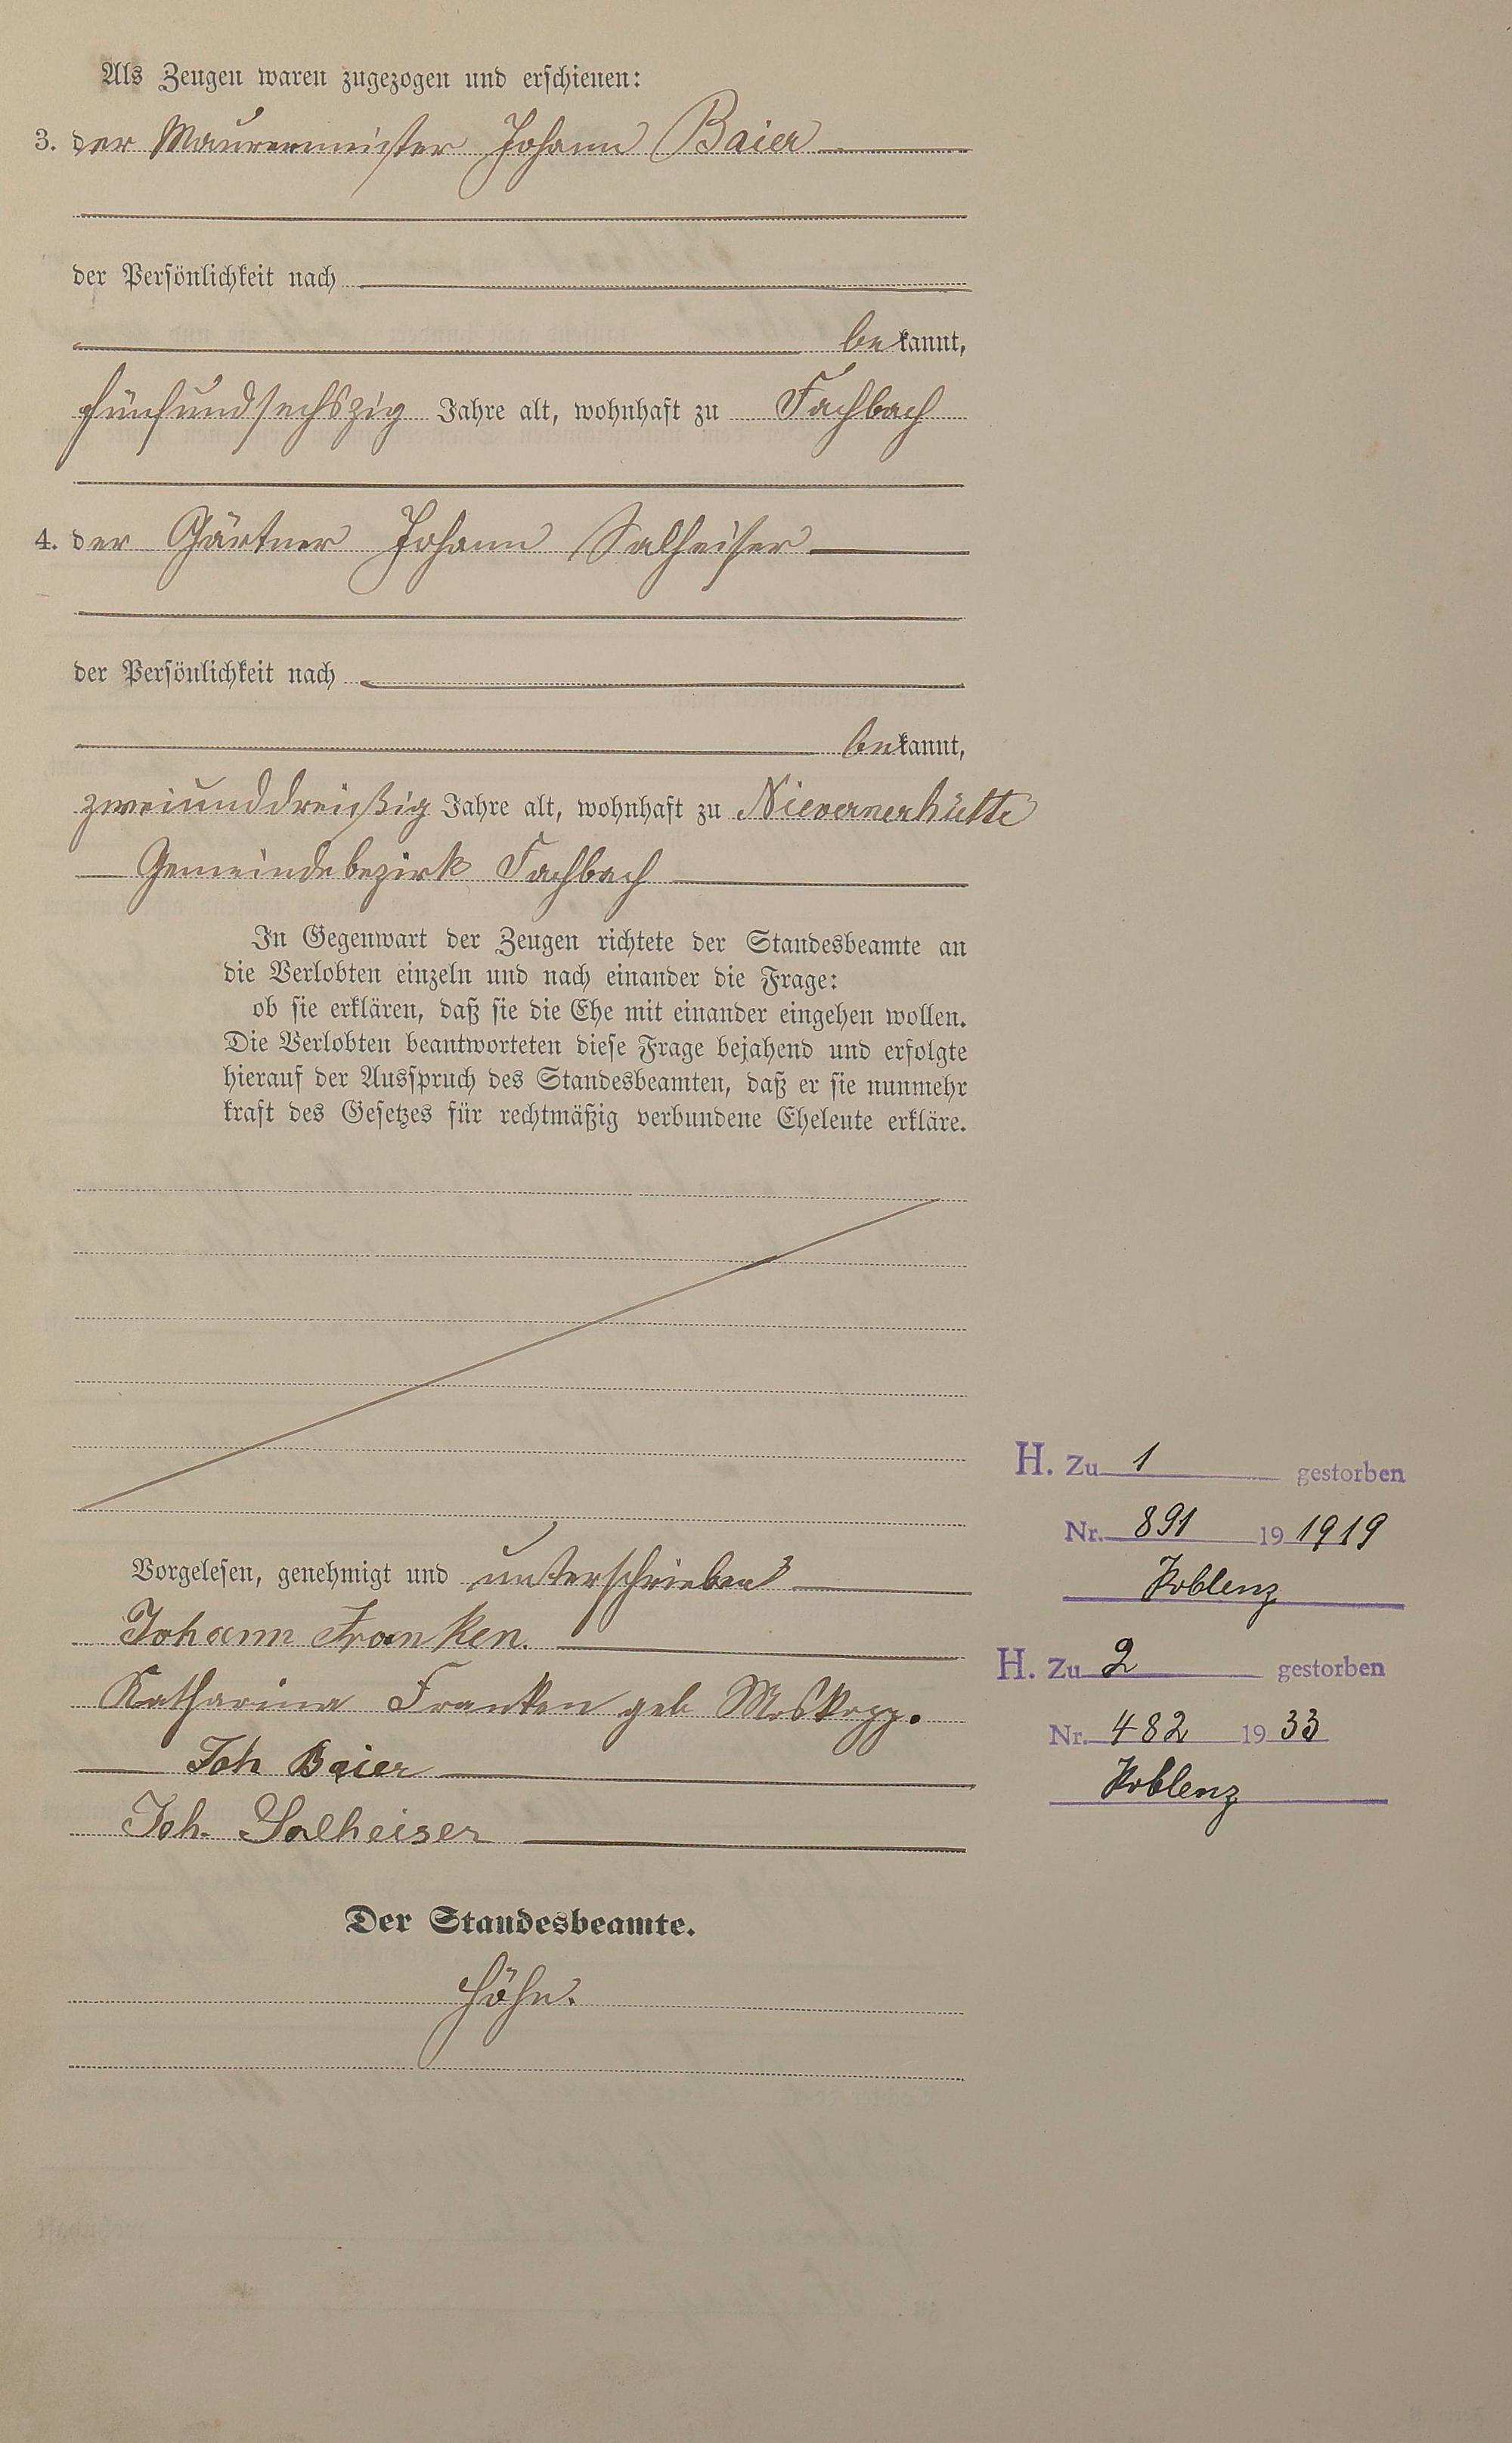 Als Zeugen waren zugezogen und erschienen:
3. der Maurermeister Johann Baier
der Persönlichkeit nach
bekannt,
fünfundsechszig Jahre alt, wohnhaft zu Fachbach
4. der Gärtner Johann Salheiser
der Persönlichkeit nach
bekannt,
zweiunddreißig Jahre alt, wohnhaft zu Nievernerhütte
Gemeindebezirk Fachbach
In Gegenwart der Zeugen richtete der Standesbeamte an
die Verlobten einzeln und nach einander die Frage:
ob sie erklären, daß sie die Ehe mit einander eingehen wollen.
Die Verlobten beantworteten diese Frage bejahend und erfolgte
hierauf der Ausspruch des Standesbeamten, daß er sie nunmehr
kraft des Gesetzes für rechtmäßig verbundene Eheleute erkläre.
Vorgelesen, genehmigt und unterschrieben
Johann Franken.
Katharina Franken geb Moskopp.
Joh Baier
Joh. Salheiser
Der Standesbeamte.
Höhn.
H. Zu 1 gestorben
Nr. 891 19 1919
Koblenz
H. Zu 2 gestorben
Nr. 482 19 33
Koblenz